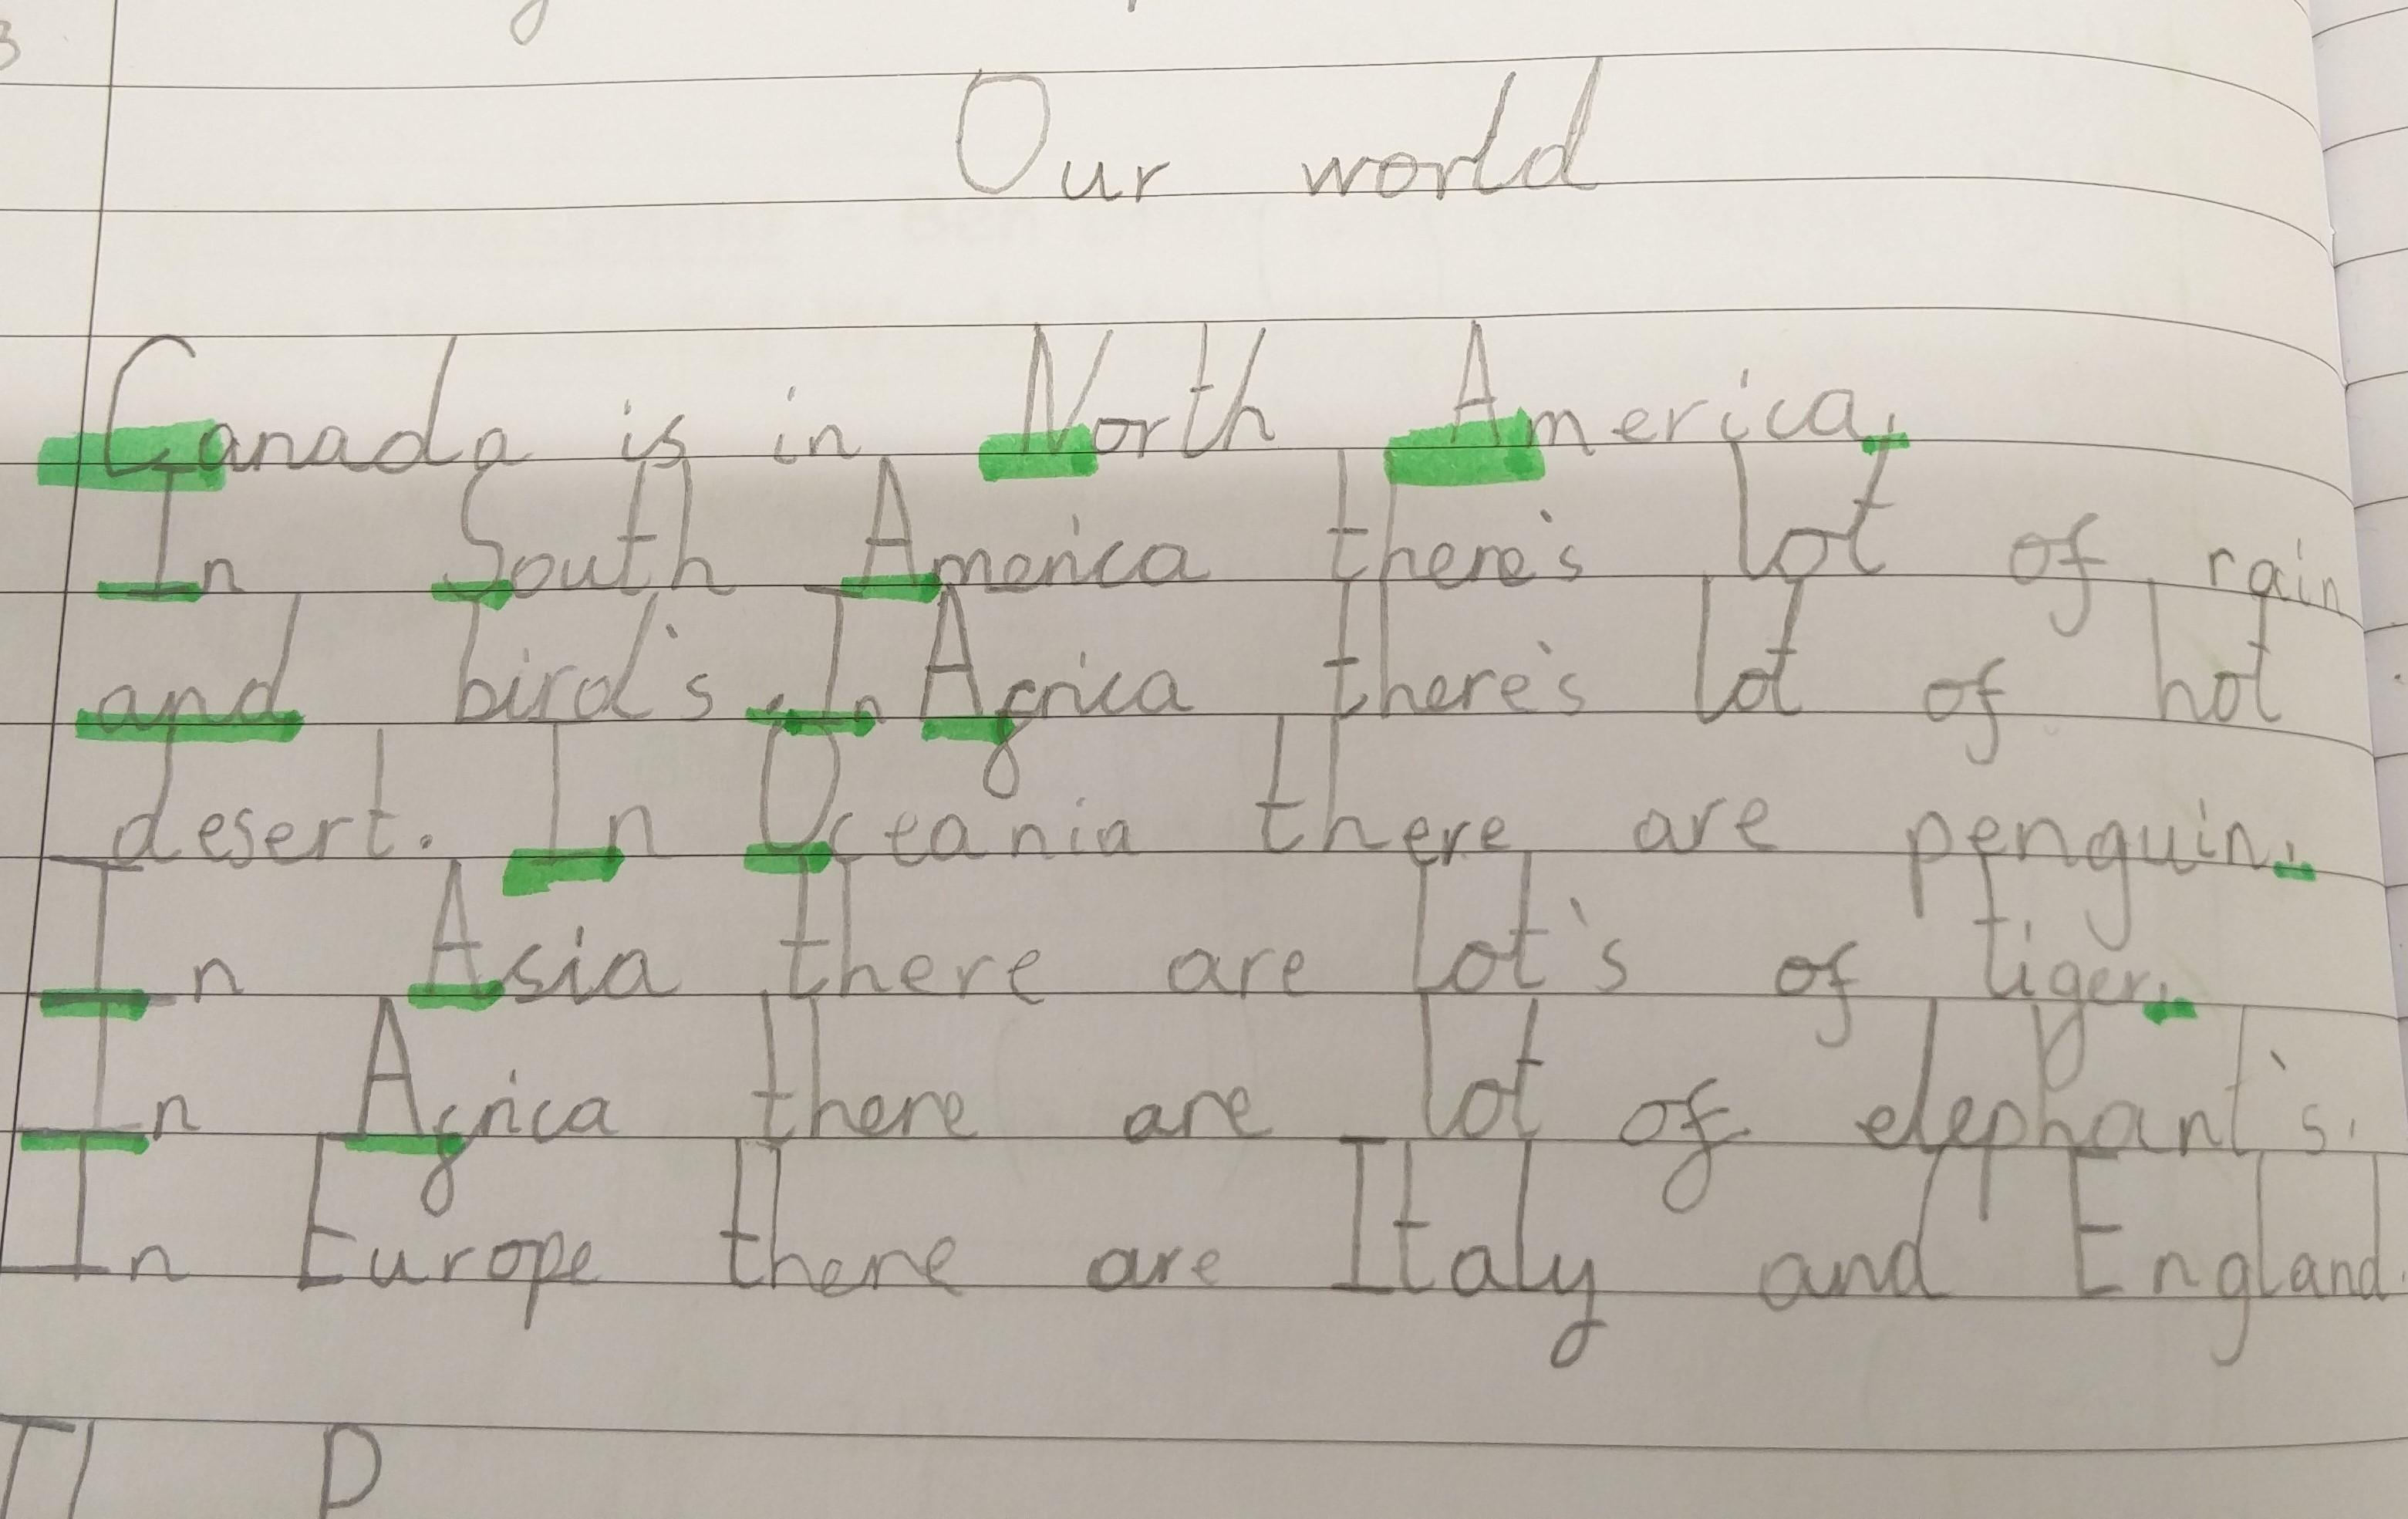 Our world
Canada is in North America.
In South America there's lot of rain
and bird's. In Africa there's lot of hot
desert. In Oceania there are penguin.
In Asia there are lot's of tiger.
In Africa there are lot of elephant's.
In Europe there are Italy and England.